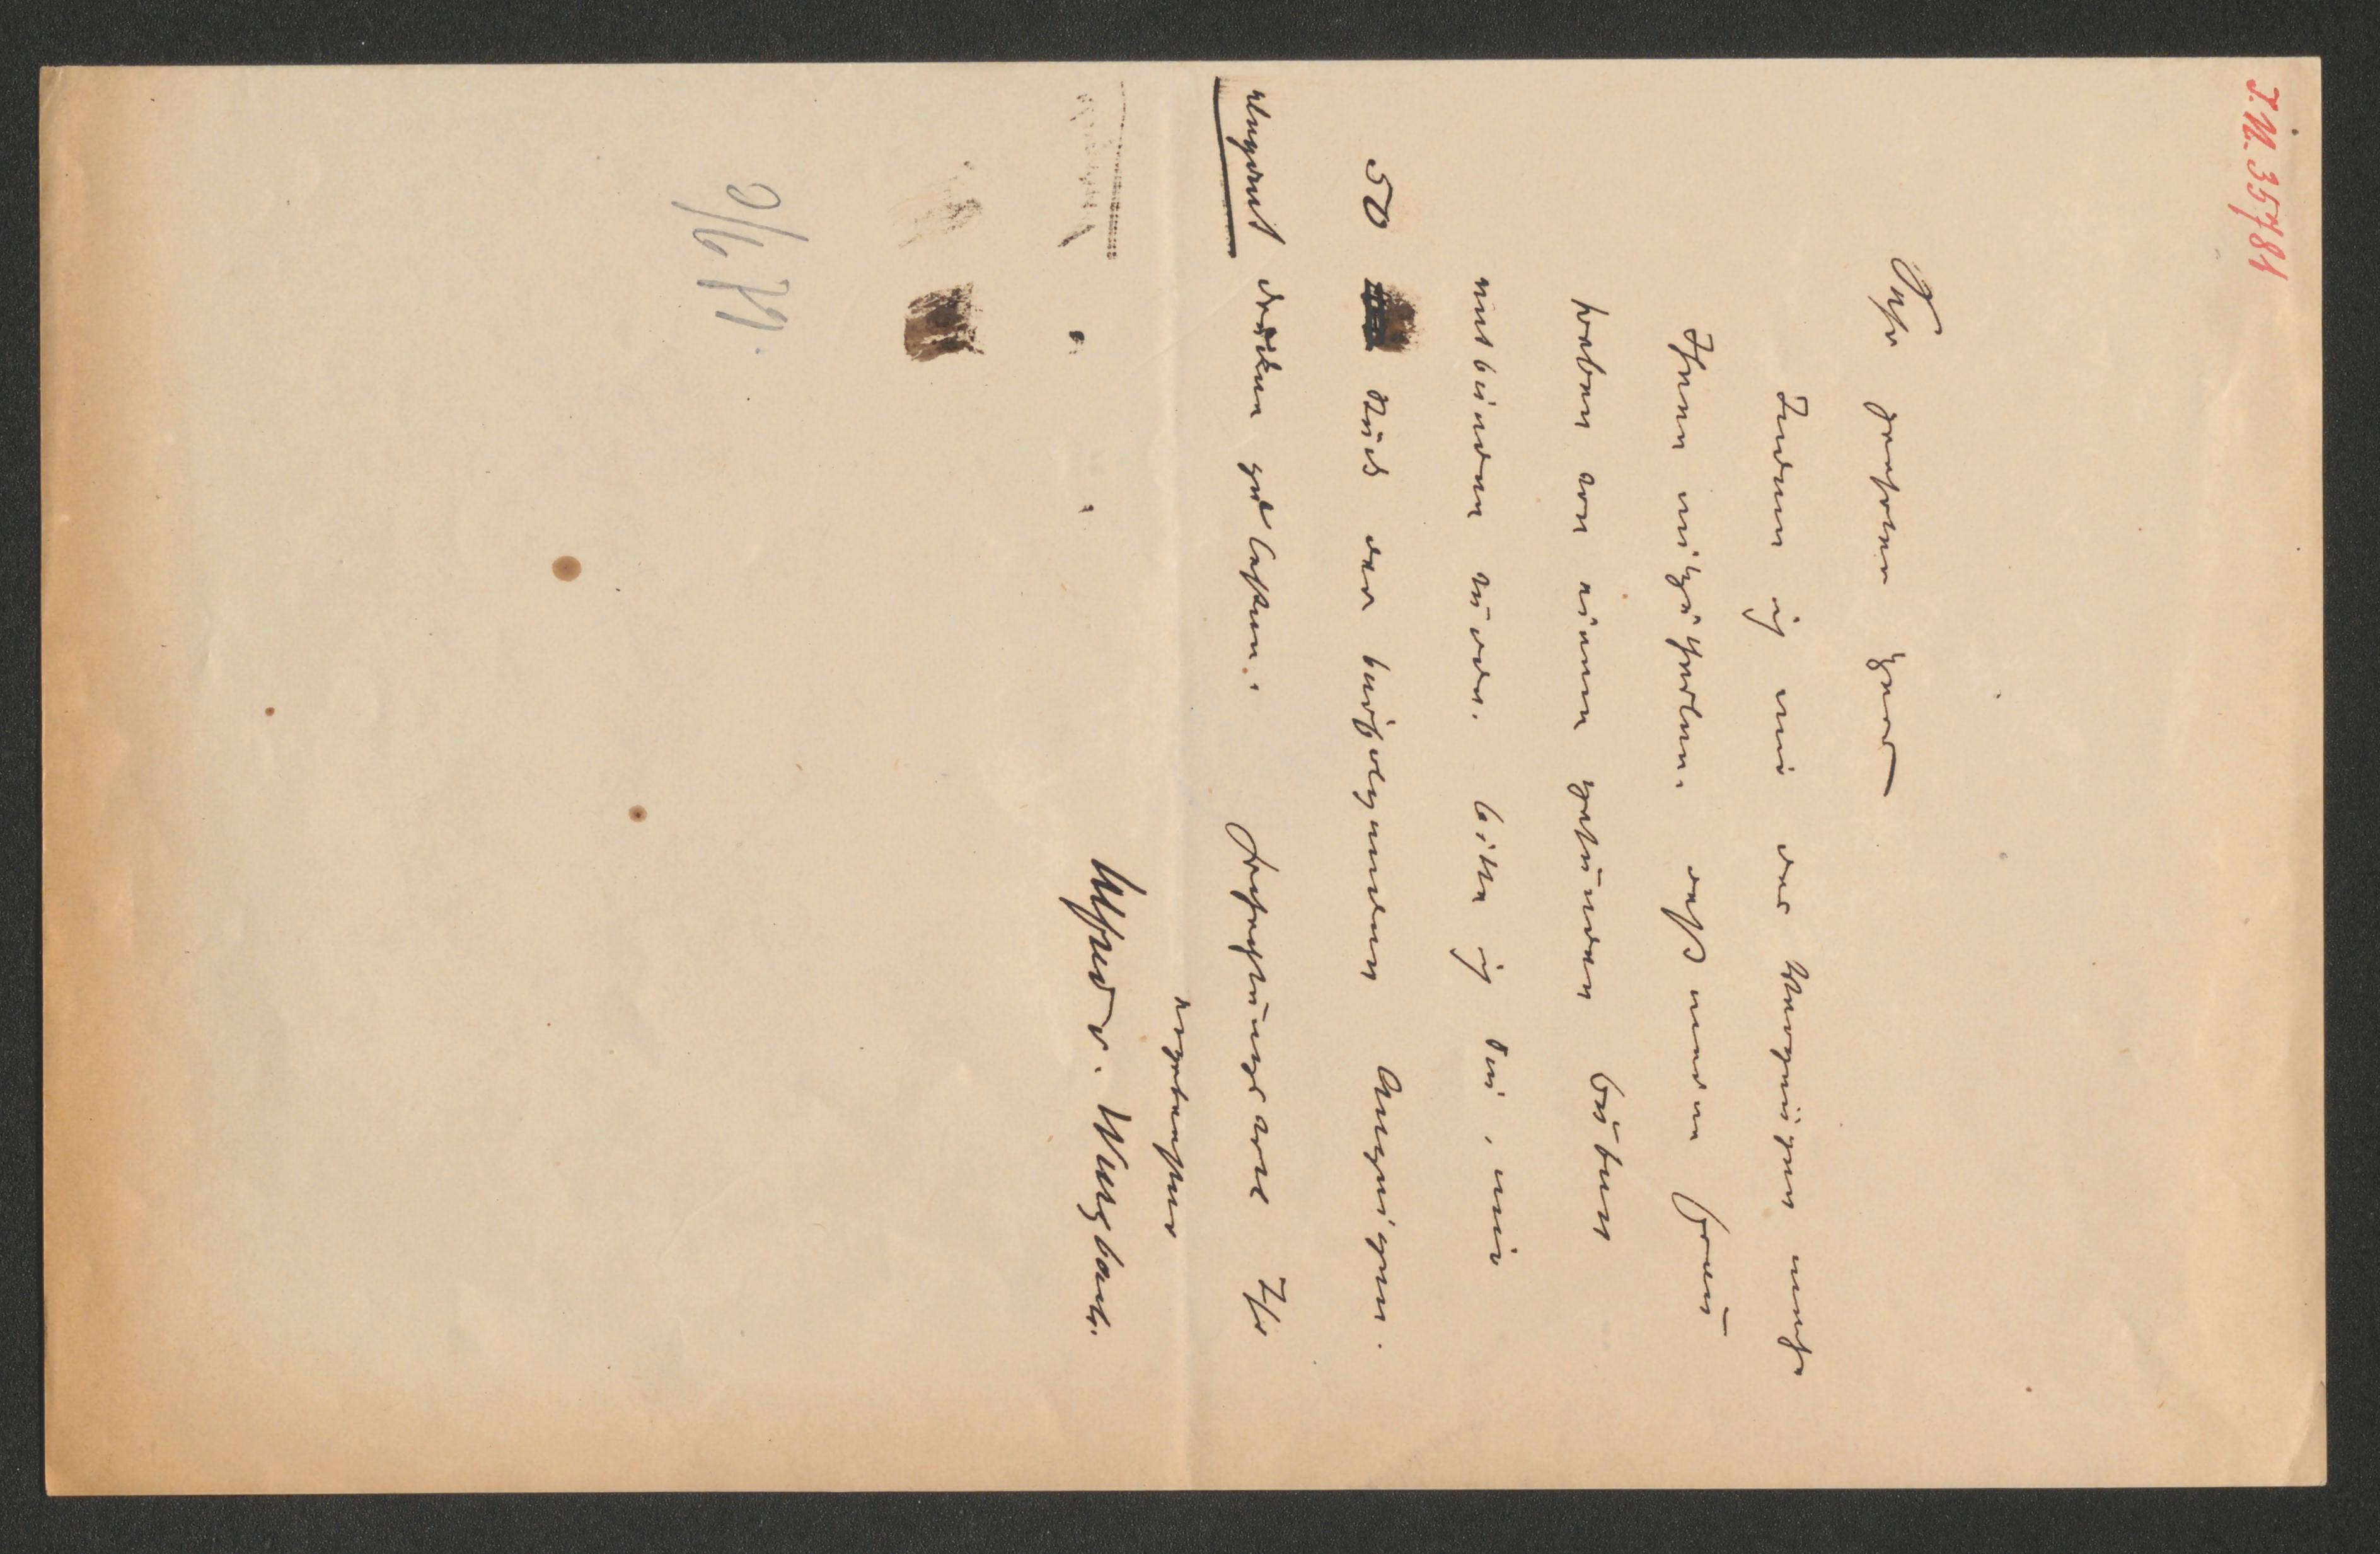 I.N. 35781
Sehr geehrter Herr
Indem ich mir das Vergnügen nehme
Ihnen mitzutheilen, daß meine Frau
soeben von einem gesunden Buben
entbunden wurde, bitte ich Sie, mir
50 Stück der beifolgenden Anzeigen
elegant drucken zu lassen. Hochachtungsvoll Ihr
ergebenster
Alfred v. Wurzbach.
9/6 79.